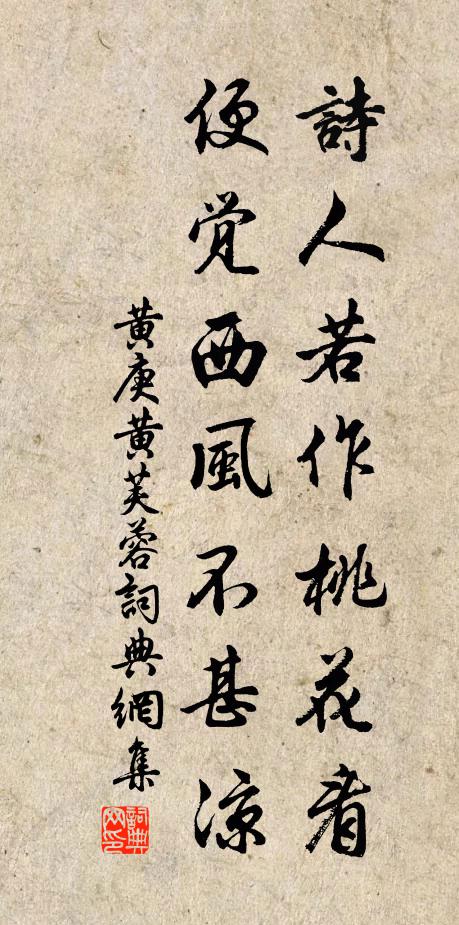 詩人若作桃花看
便觉西風不甚涼
黄庚黄芙蓉詞典網集
詞典
网印